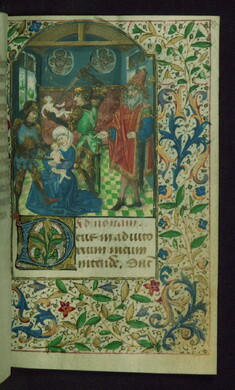 Ad nonam
Deus in adiuto
rium meum
intende. Dne